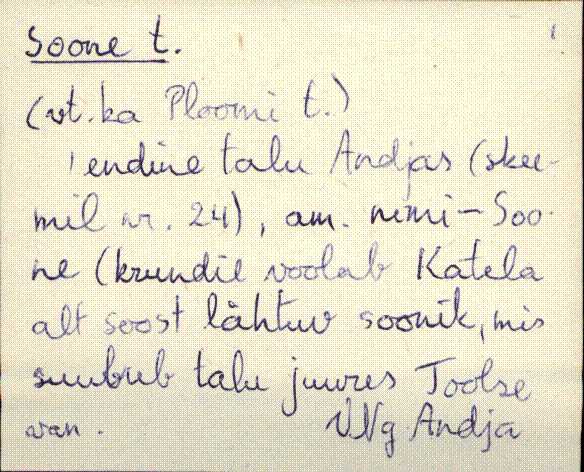 Soone t.
(vt. ka Ploomi t.)
endine talu Andjas (skee-
mil nr. 24), am. nimi – Soo-
ne (krundil voolab Katela
alt soost lähtuv soonik, mis
suubub talu juures Toolse
VNg Andja